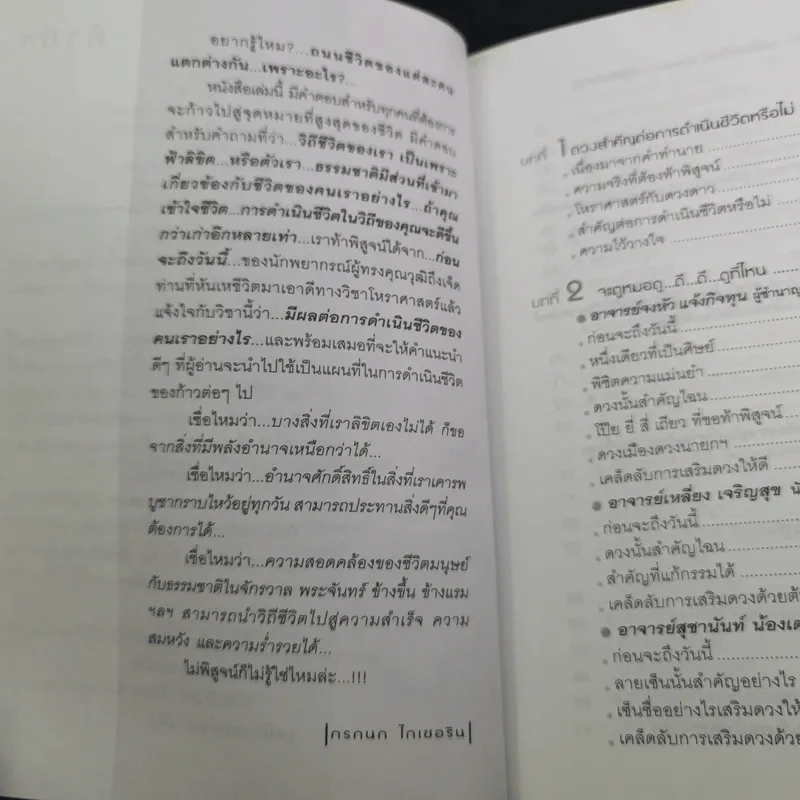 อยากรู้ไหม?...ถนนชีวิตของแต่ละคน
แตกต่างกัน...เพราะอะไร?...
หนังสือเล่มนี้ มีคำตอบสำหรับทุกคนที่ต้องการ
จะก้าวไปสู่จุดหมายที่สูงสุดของชีวิต มีคำตอบ
สำหรับคำถามที่ว่า...วิถีชีวิตของเรา เป็นเพราะ
ฟ้าลิขิต...หรือตัวเรา...ธรรมชาติมีส่วนที่เข้ามา
เกี่ยวข้องกับชีวิตของคนเราอย่างไร...ถ้าคุณ
เข้าใจชีวิต...การดำเนินชีวิตในวิถีของคุณจะดีขึ้น
กว่าเก่าอีกหลายเท่า...เราท้าพิสูจน์ได้จาก...ก่อน
จะถึงวันนี้...ของนักพยากรณ์ผู้ทรงคุณวุฒิถึงเจ็ด
ท่านที่หันเหชีวิตมาเอาดีทางวิชาโหราศาสตร์แล้ว
แจ้งใจกับวิชานี้ว่า...มีผลต่อการดำเนินชีวิตของ
คนเราอย่างไร...และพร้อมเสมอที่จะให้คำแนะนำ
ดีๆ ที่ผู้อ่านจะนำไปใช้เป็นแผนที่ในการดำเนินชีวิต
ของก้าวต่อๆ ไป
เชื่อไหมว่า...บางสิ่งที่เราลิขิตเองไม่ได้ ก็ขอ
จากสิ่งที่มีพลังอำนาจเหนือกว่าได้...
เชื่อไหมว่า...อำนาจศักดิ์สิทธิ์ในสิ่งที่เราเคารพ
บูชากราบไหว้อยู่ทุกวัน สามารถประทานสิ่งดีๆที่คุณ
ต้องการได้...
เชื่อไหมว่า...ความสอดคล้องของชีวิตมนุษย์
กับธรรมชาติในจักรวาล พระจันทร์ ข้างขึ้น ข้างแรม
ฯลฯ สามารถนำวิถีชีวิตไปสู่ความสำเร็จ ความ
สมหวัง และความร่ำรวยได้...
ไม่พิสูจน์ก็ไม่รู้ใช่ไหมล่ะ...!!!
กรกนก ไกเซอริน
บทที่ 1 ดวงสำคัญต่อการดำเนินชีวิตหรือไม่
เนื่องมาจากคำทำนาย
ความจริงที่ต้องท้าพิสูจน์
โหราศาสตร์กับดวงดาว
สำคัญต่อการดำเนินชีวิตหรือไม่
ความไว้วางใจ
บทที่ 2 จะดูหมอดู...ดี...ดี...ดูที่ไหน
อาจารย์จงหัว แจ้งกิจทุน ผู้ชำนาญ
ก่อนจะถึงวันนี้
หนึ่งเดียวที่เป็นศิษย์
พิชิตความแม่นยำ
ดวงนั้นสำคัญไฉน
โป๊ย ยี่ สี่ เถียว ที่ขอท้าพิสูจน์
ดวงเมืองดวงนายกฯ
เคล็ดลับการเสริมดวงให้ดี
อาจารย์เหลี่ยง เจริญสุข
ก่อนจะถึงวันนี้
ดวงนั้นสำคัญไฉน
สำคัญที่แก้กรรมได้
เคล็ดลับการเสริมดวงด้วยตั
อาจารย์สุชานันท์ น้องเต
ก่อนจะถึงวันนี้
ลายเซ็นนั้นสำคัญอย่างไร
เซ็นชื่ออย่างไรเสริมดวงให้
เคล็ดลับการเสริมดวงด้วย